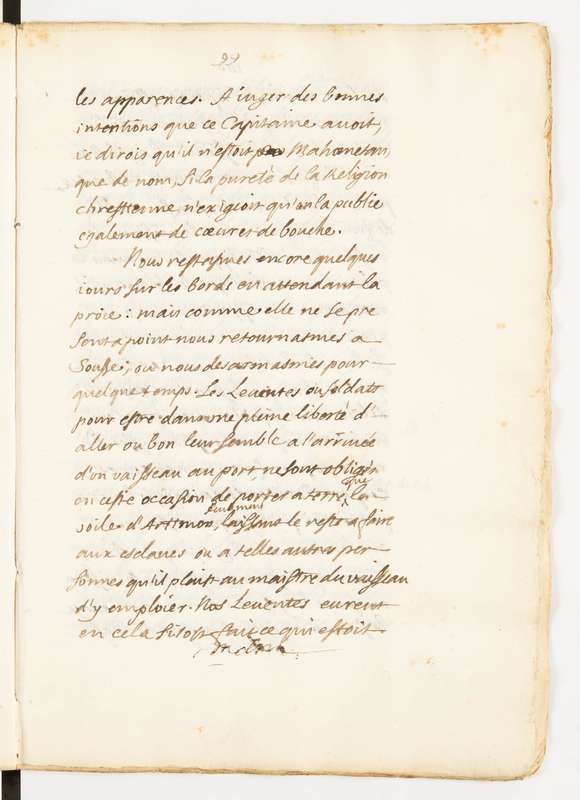 les apparences. A iuger des bonnes
intentions que ce Capitaine avoit,
ie dirois qu'il n'estoit Mahometan,
que de nom, si la pureté de la Religion
chrestienne n'exigeoit qu'on la publie
egalement de cœur et de bouche.
Nous restasmes encore quelques
iours sur les bords en attendant la
proie: mais comme elle ne se pre
senta point nous retournasmes a
Sousse; ou nous desarmasmes pour
quelque temps. Les Leventes ou soldats
pour estre dans une pleine liberté d'
aller ou bon leur semble a l'arrivée
d'un vaisseau au port ne sont obligés
en ceste occasion de porter a terre, que la
voile d'Artimon, seulement laissant le reste a faire
aux esclaves ou a telles autres per
sonnes qu'il plaist au maistre du vaisseau
d'y emploier. Nos Leventes eurent
en cela si tost fait ce qui estoit